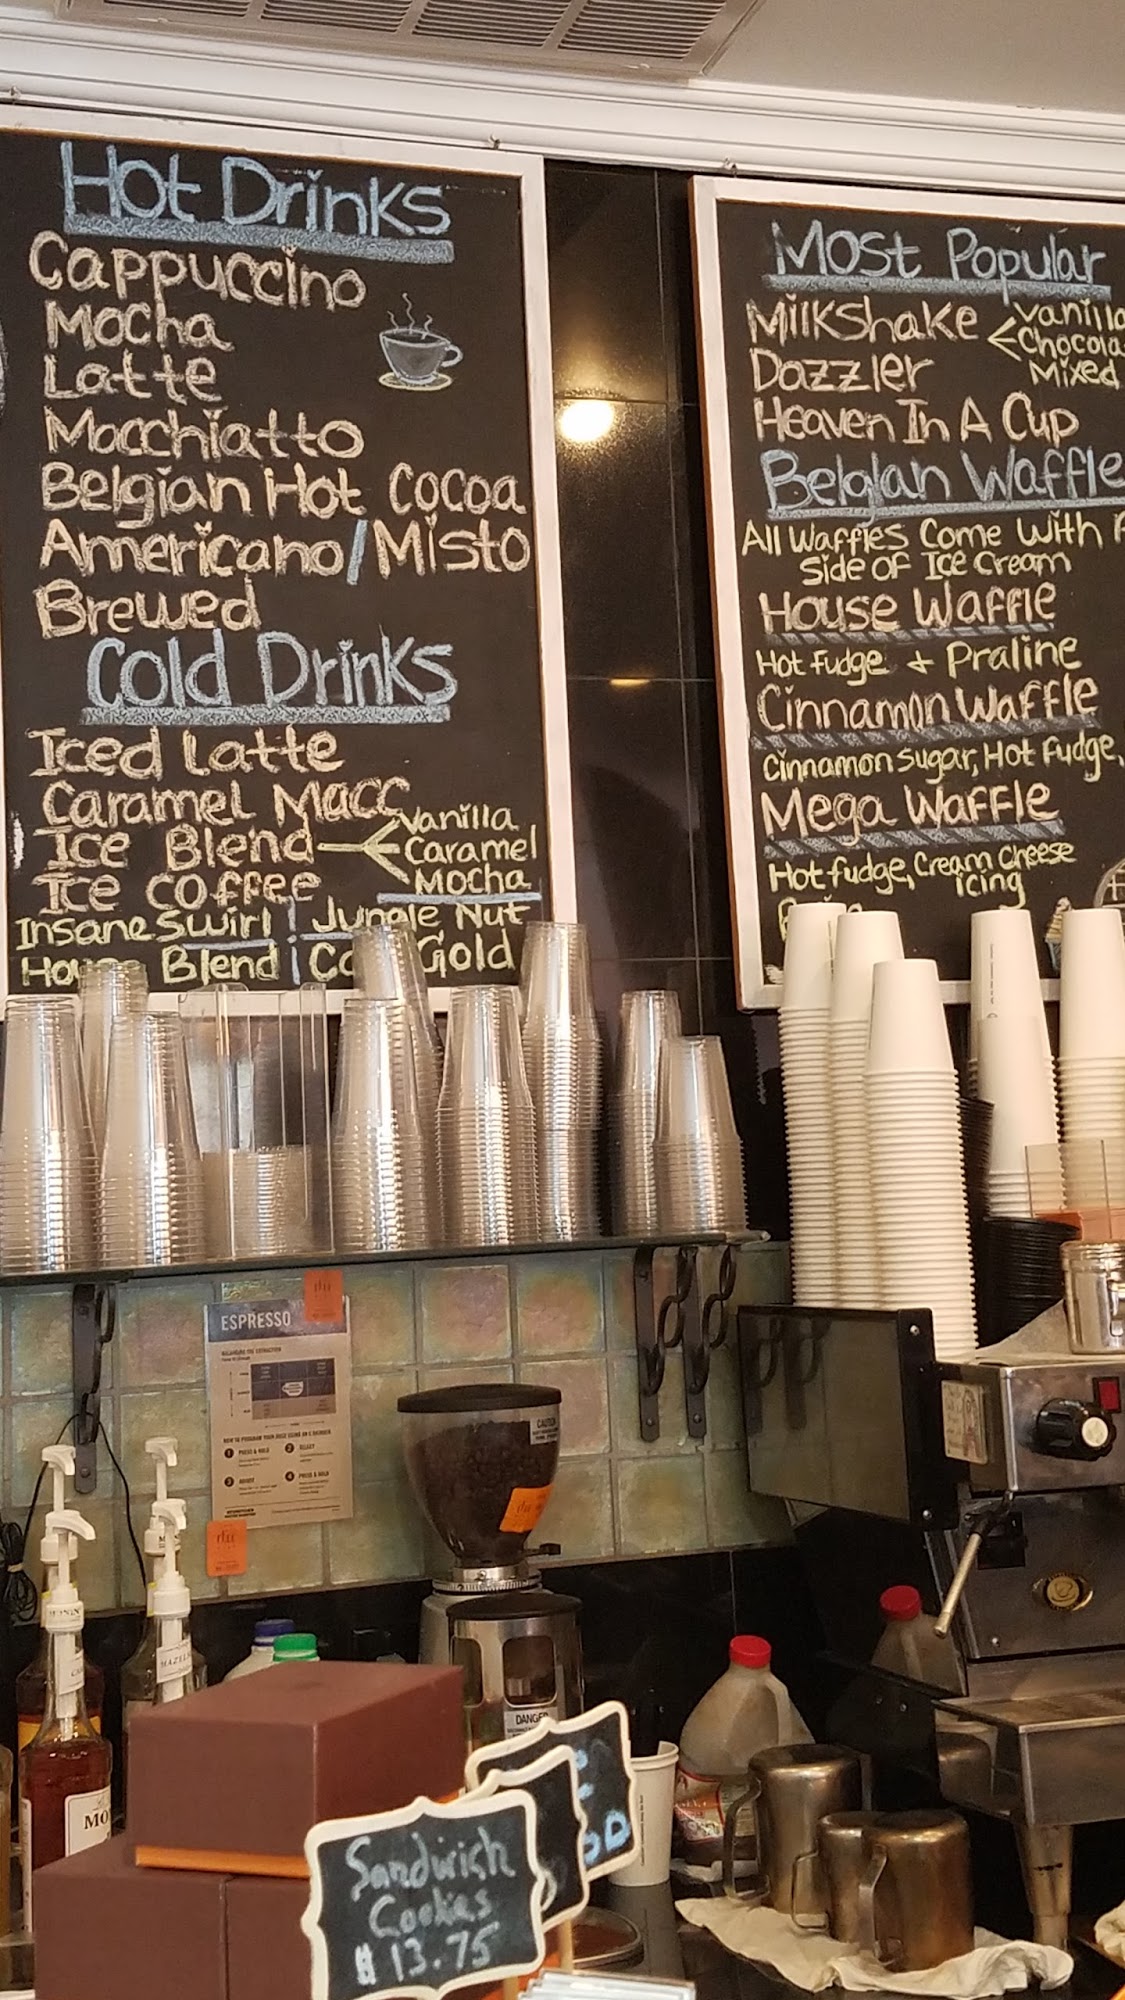 Hot Drinks
Cappuccino
Mocha
Latte
Macchiatto
Belgian Hot Cocoa
Americano/Misto
Brewed
Cold Drinks
Iced Latte
Caramel Macc
Ice Blend
Vanilla
Caramel
Mocha
Ice Coffee
Insane Swirl Jungle Nut
Blend Gold
Most Popular
Milkshake
Vanilla
Mixed
Dazzler
Heaven In A Cup
Belgian Waffle
All Waffles Come With
Side of Ice Cream
House Waffle
Hot Fudge + Praline
Cinnamon Waffle
Cinnamon Sugar, Hot Fudge,
Mega Waffle
Hot fudge, Cream Cheese
Icing
ESPRESSO
PRESS & HOLD
SELECT
ADJUST
PRESS & HOLD
CAUTION
DANGER
Sandwich
Cookies
$13.75